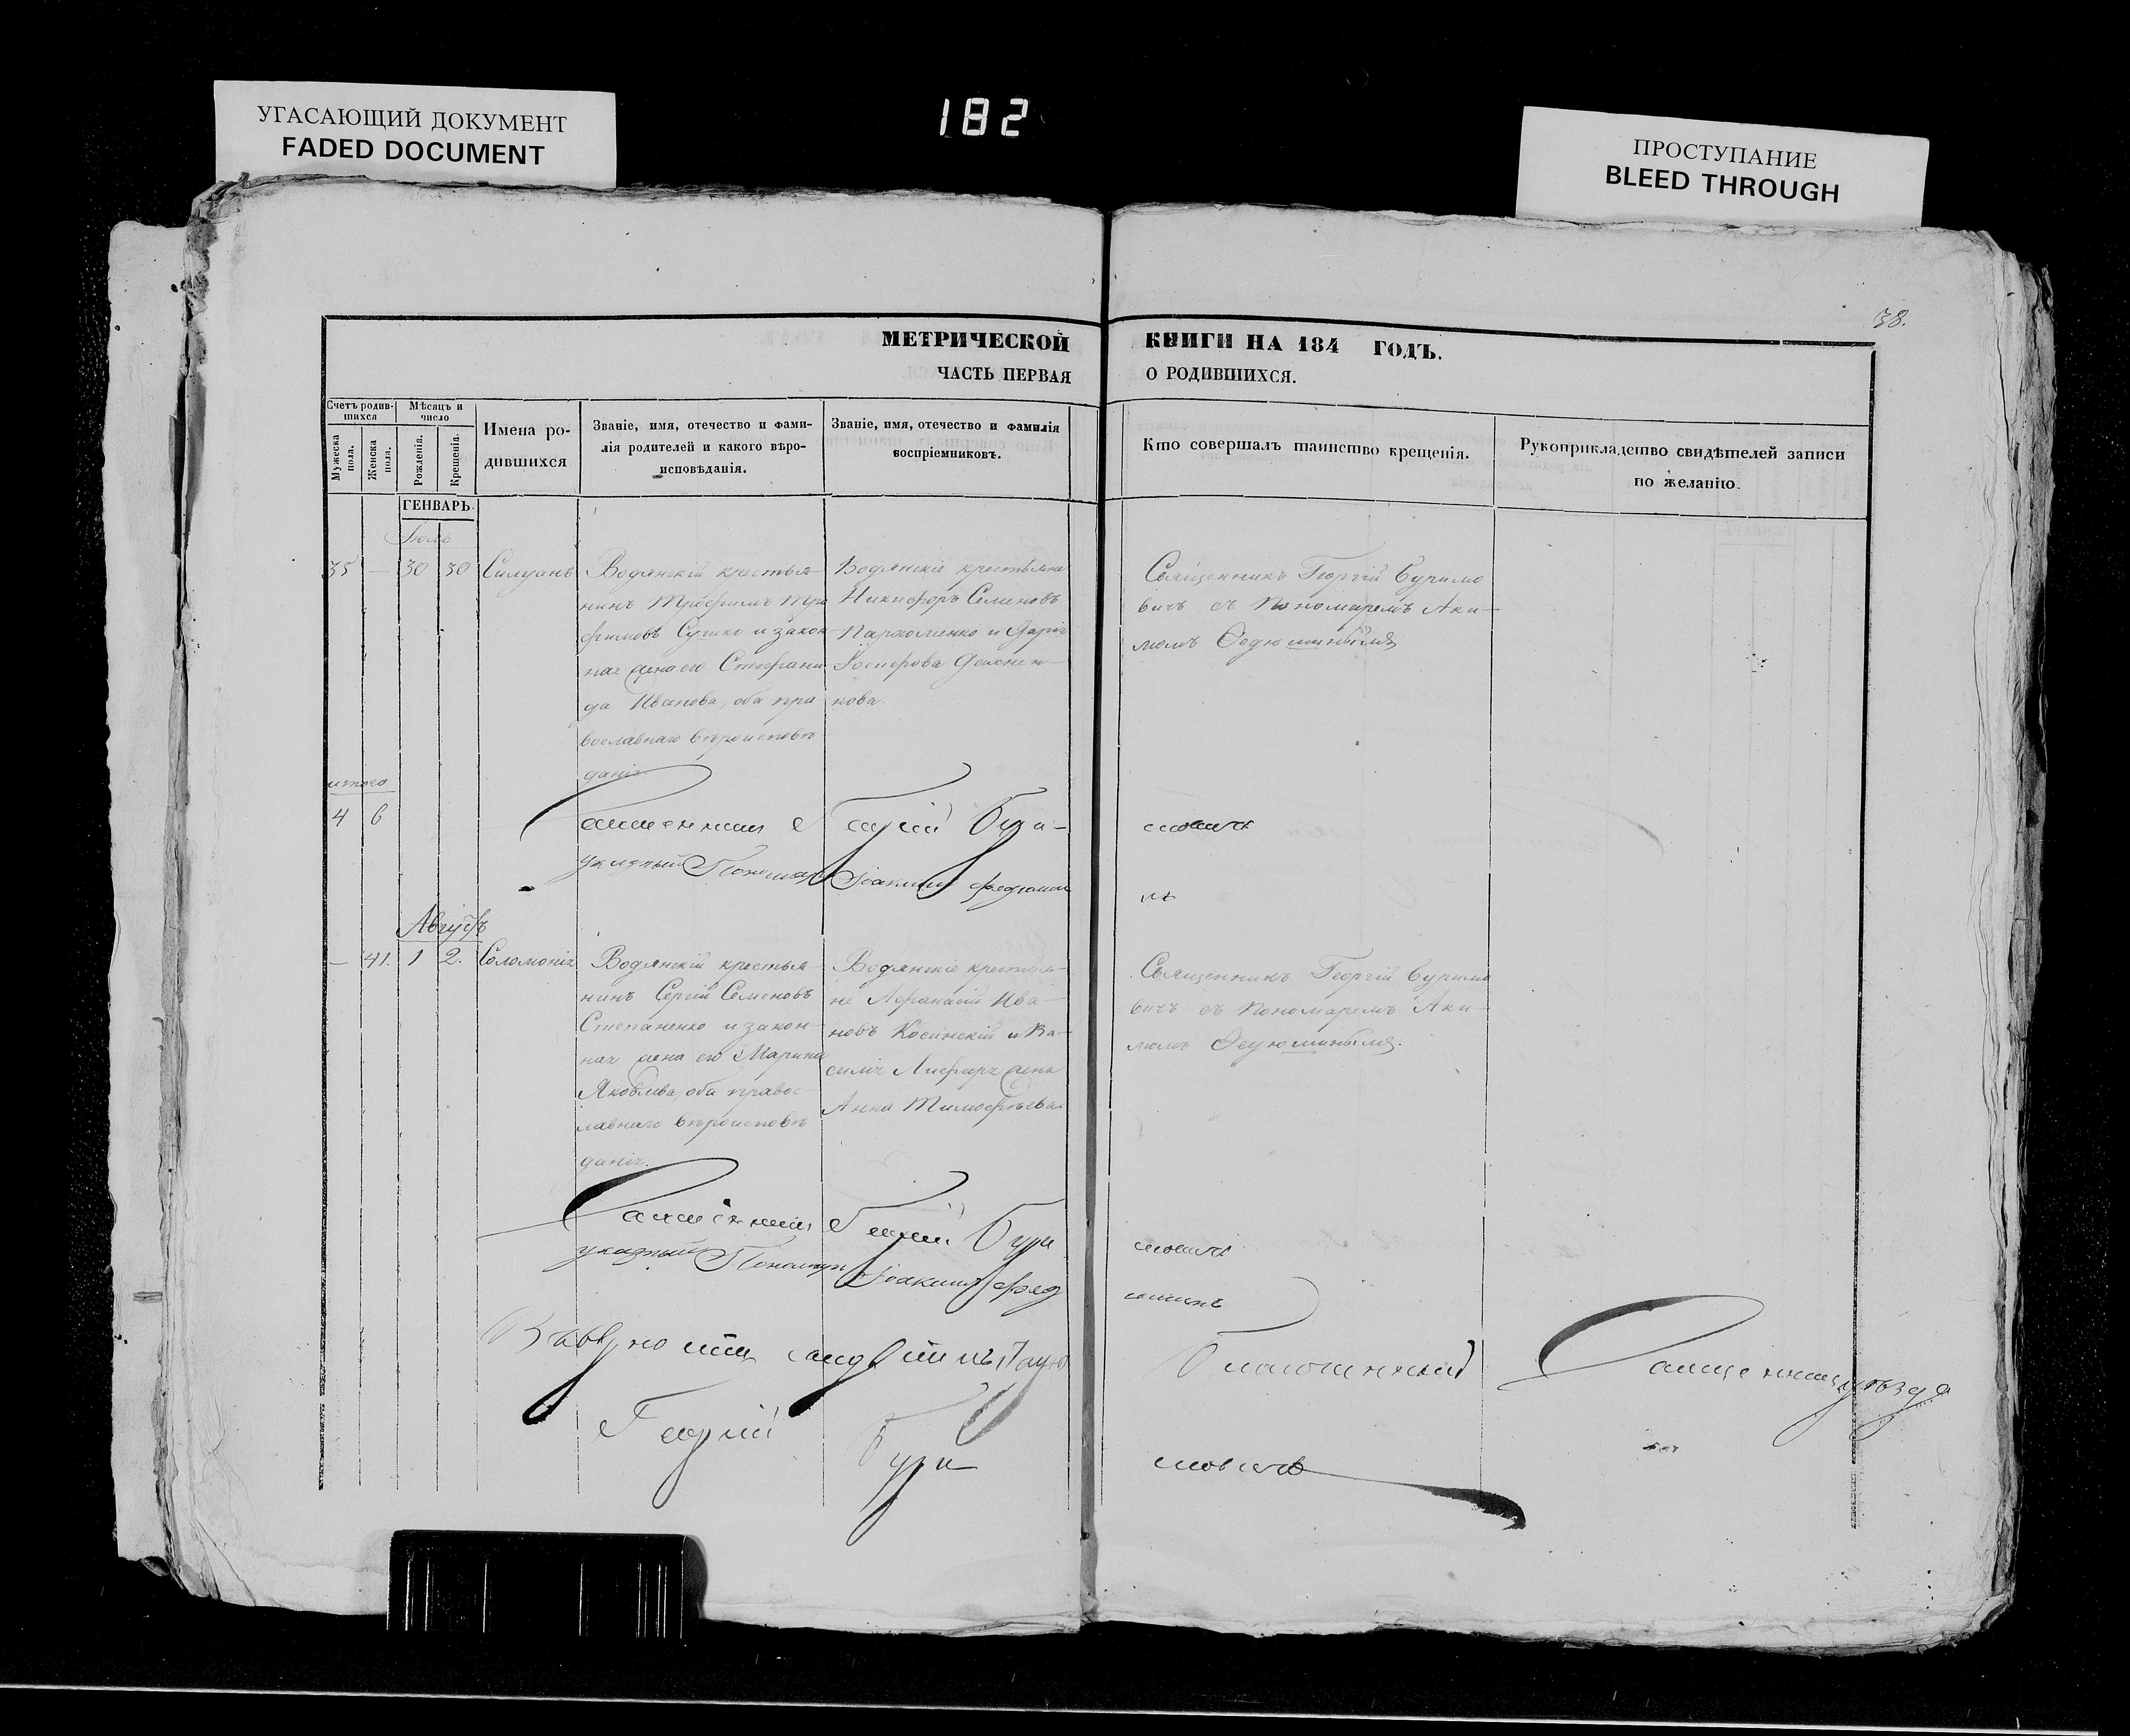 УГАСАЮЩИЙ ДОКУМЕНТ
FADED DOCUMENT
182
ПРОСТУПАНИЕ
BLEED THROUGH
38.
МЕТРИЧЕСКОЙ КНИГИ НА 184 ГОДЪ.
ЧАСТЬ ПЕРВАЯ О РОДИВШИХСЯ.
Счетъ родив-
шихся
Мужеска пола.
Женска пола.
Мѣсяцъ и
число
Рожденія.
Крещенія.
Имена ро-
дившихся
Званіе, имя, отечество и фами-
лія родителей и какого вѣро-
исповѣданія.
Званіе, имя, отечество и фамилія
воспріемниковъ.
Кто совершалъ таинство крещенія.
Рукоприкладство свидѣтелей записи
по желанію.
ГЕНВАРЬ.
Іюль
35 — 30 30 Силуанъ
Водянскій крестья-
нинъ Трофимъ Тро
фимовъ Сушко и закон
ная жена его Стефани
да Иванова, оба пра
вославнаго вѣроисповѣ
данія.
Водянскіе крестьяне
Никифоръ Семеновъ
Пархоменко и Дарія
нова.
Священникъ Георгій Буримо
вичъ съ Пономаремъ Аки-
момъ Ѳедюшинымъ
итого
4 6
Священникъ Георгій Бури-
мовичъ
указный Пономарь Іоакимъ Федюшин
нъ
Августъ
— 41. 1 2. Соломонія
Водянскій крестья-
нинъ Сергій Семеновъ
Степаненко и закон-
ная жена его Марина
Яковлева, оба правос
лавнаго вѣроисповѣ
данія.
Водянскіе крестья-
не Афанасій Ива-
новъ Косинскій и Ва-
силія Лифаря жена
Анна Тимофѣева
Священникъ Георгій Буримо
вичъ съ Пономаремъ Аки-
момъ Ѳедюшинымъ.
Священникъ Георгій Бури
мовичъ
указный Пономарь Іоакимъ Фед
юшинъ
Священникъ
Георгій Бури
мовичъ